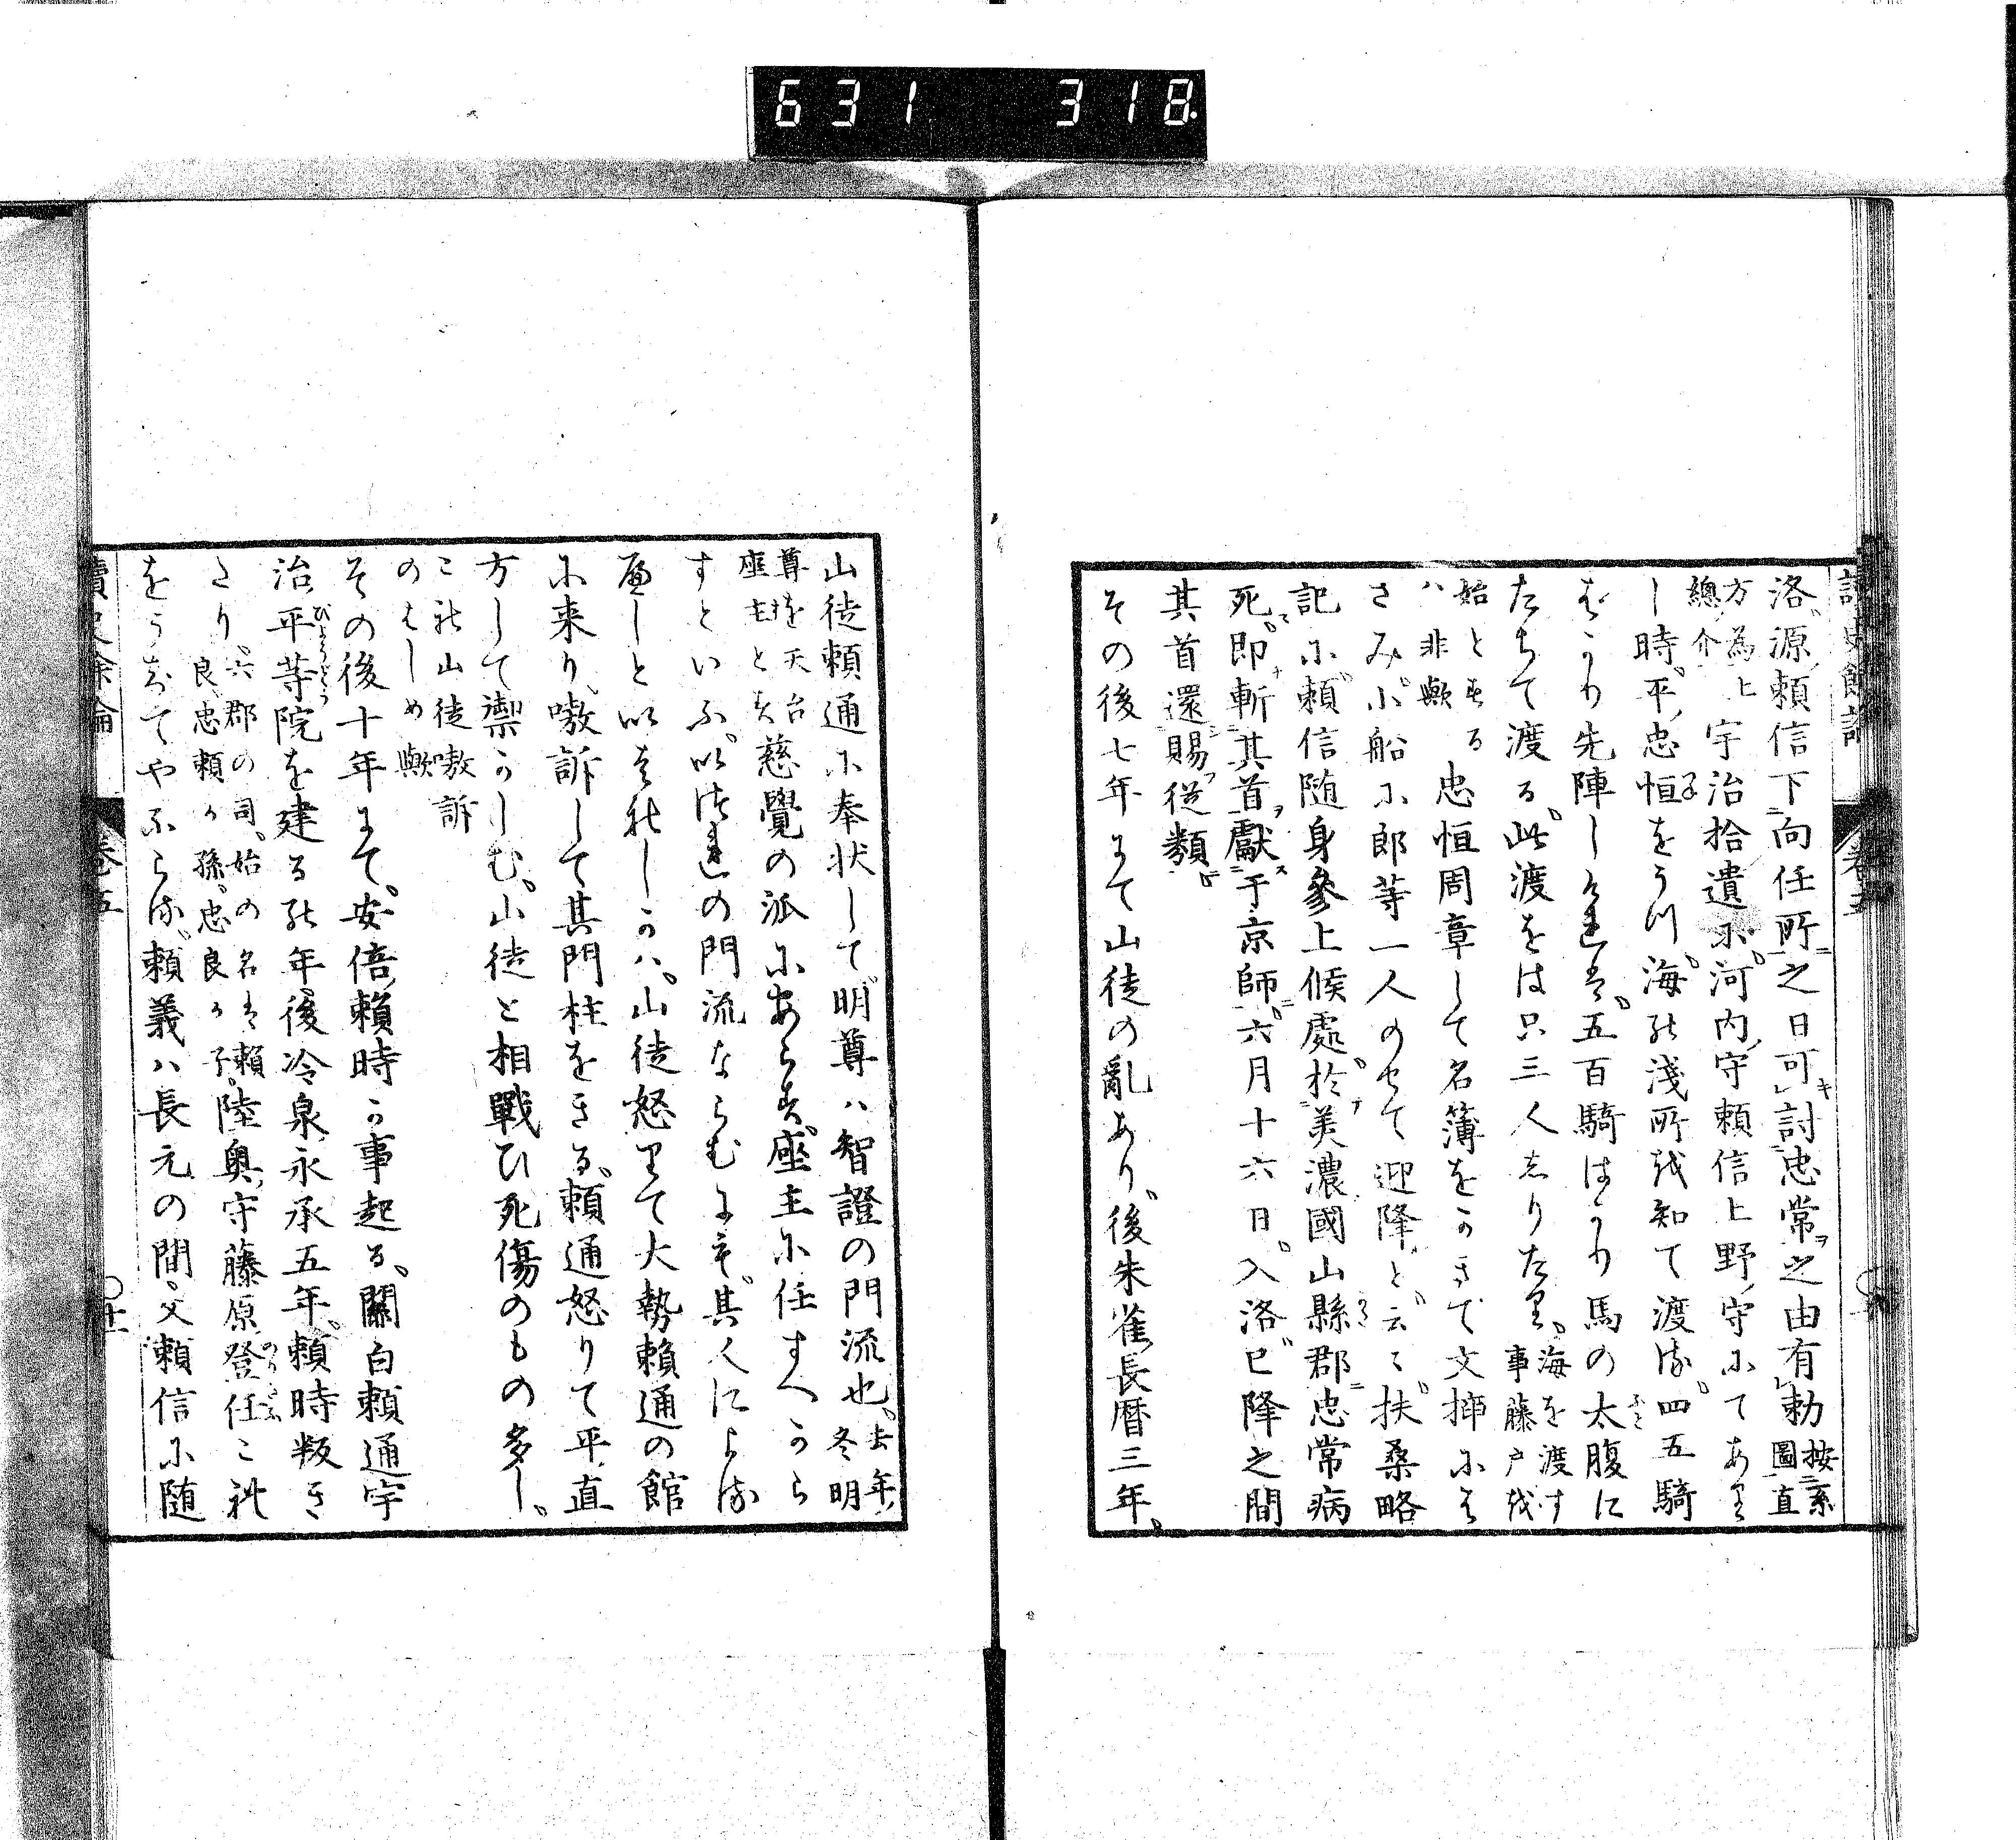 631 318
洛源頼信下向任所之日可討忠常之由有勅按系圖直
方為上總介宇治拾遺に河内守頼信上野守にてあり
し時平忠恒をうつ海の淺所を知て渡る四五騎
はかり先陣しけれは五百騎はかり馬の太腹に
たちて渡る此渡をは只三人しりたり海を渡す事藤戸を
始とするハ非歟忠恒周章して名簿をかきて文挿には
さみ小船に郎等一人のせて迎降と云々扶桑略
記に頼信随身參上候處於美濃國山縣郡忠常病
死即斬其首獻于京師六月十六日入洛已降之間
其首還賜從類
その後七年にて山徒の亂あり後朱雀長暦三年
山徒頼通に奉状して明尊ハ智證の門流也去年冬明
尊を天台座主とす慈覺の派にあらす座主に任すへから
すといふ以つれの門流ならむにも其人による
へしと以はれしかハ山徒怒りて大勢頼通の館
に来り嗷訴して其門柱をきる頼通怒りて平直
方して禦かしむ山徒と相戰ひ死傷のもの多し
これ山徒嗷訴のはしめ歟
その後十年にて安倍頼時か事起る關白頼通宇
治平等院を建る年後冷泉永承五年頼時叛き
たり六郡の司始の名は頼良忠頼か孫忠良か子陸奥守藤原登任これ
をうちてやふらる頼義ハ長元の間父頼信に随
讀史餘論 卷五 十一